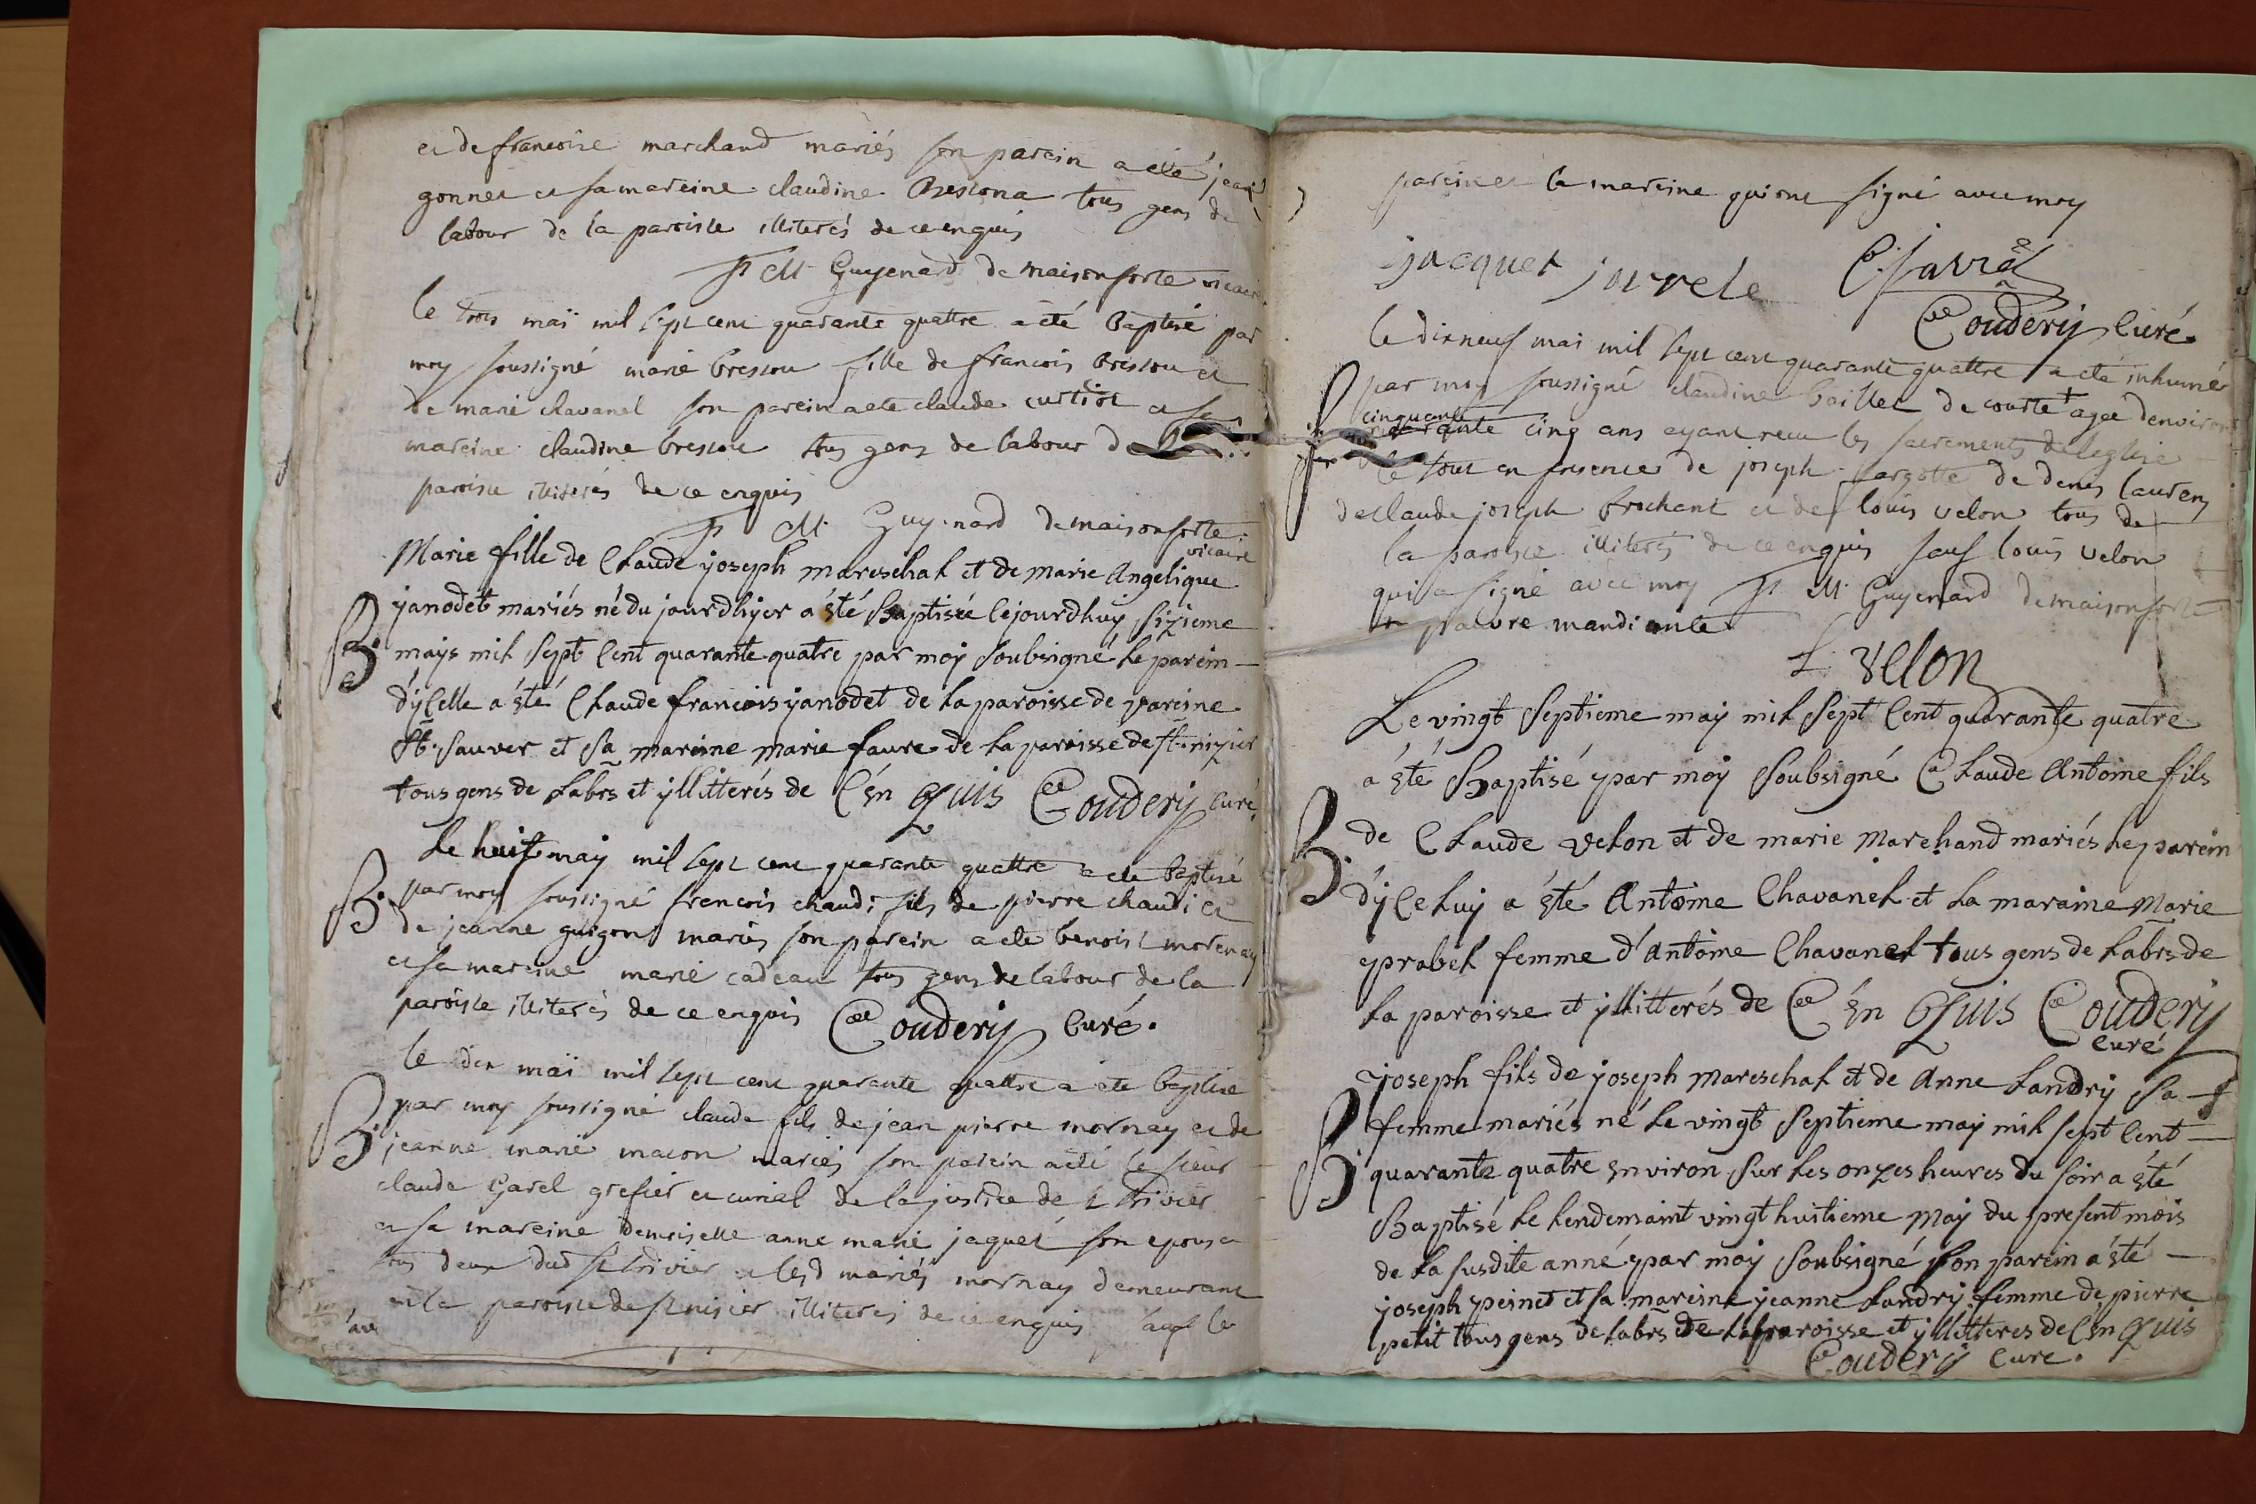 et de francoise marchand mariés son parein a été jean
gonnet et sa mareine claudine Bressona tous gens de
labour de la paroisse illiterés de ce enquis
f M Guyenard de maisonforte vicaire
le trois maï mil sept cent quarante quattre a été Baptisé par
moy soussigné marie bressou fille de francois bressou et
de marie chavanel son parein a ete claude curtiot et sa
mareine claudine bressou tous gens de labour de
paroisse illiterés de ce enquis
f M Guyenard demaisonforte
vicaire
Marie fille de Claude joseph mareschal et de marie Angelique
janodet mariés né du jourdhyer a ésté Baptisée cejourdhuy sizieme
B. mays mil sept cent quarante quatre par moy soubsigné le parein
d'ycelle a ésté Claude francois janodet de la paroisse de vareine
St. Sauver et sa mareine marie faure de la paroisse de St. nizier
tous gens de labrs et yllitterés de C'én Quis Couderij curé.
Le huit may mil sept cent quarante quattre a ete baptisé
B. par moy soussigné francois chaudi fils de pierre chaudi et
de jeanne guigon mariés son parein a ete benoist mornay
et sa mareine marie cadeau tous gens de labour de la
paroisse illiterés de ce enquis Couderij Curé.
le dix maï mil sept cent quarante quattre a ete baptise
B. par moy soussigné claude fils de jean pierre mornay et de
jeanne marie macon mariés son parein a eté le sieur
claude Garel grefier et curial de la justice de t trivier
et sa mareine demoiselle anne marie jaquet son epouse
tous deux dud st trivier lesd mariés mornay demeurant
en la paroisse de st nisier illiterés de ce enquis sauf le
parein et la mareine qui ont signé avec moy
jacquet
Couderij Curé.
le dixneuf mai mil sept cent quarante quattre a eté inhumé
par moy soussigné claudine baillet de courte + agee denviron
cinquante
cinq ans ayant recu les sacrements de leglise
le tout en presence de joseph de denis laurent
de claude joseph brochant et de louis velon tous de
la paroisse illiterés de ce enquis sauf louis velon
qui a signé avec moy f M Guyenard demaisonforte
+ pauvre mandiante
L velon
Le vingt Septieme may mil Sept Cent quarante quatre
a ésté Baptisé par moy Soubsigné Claude Antoine fils
B. de Claude velon et de marie marchand mariés le parein
d'yceluy a ésté Antoine Chavanel et la maraine Marie
probel femme d'Antoine Chavanel tous gens de labrs de
la paroisse et yllitterés de C'én Quis Couderij
curé
joseph fils de joseph mareschal et de Anne Landry sa
femme mariés né le vingt Septieme may mil sept Cent
B. quarante quatre environ sur les onzes heures du soir a ésté
Baptisé le lendemaint vingt huitieme May du present mois
de la susdite anné par moy Soubsigné son parein a ésté
joseph peinet et sa mareine jeanne Landry femme de pierre
petit tous gens de labrs de la paroisse et yllitteres de C'én Quis
Couderij Curé.